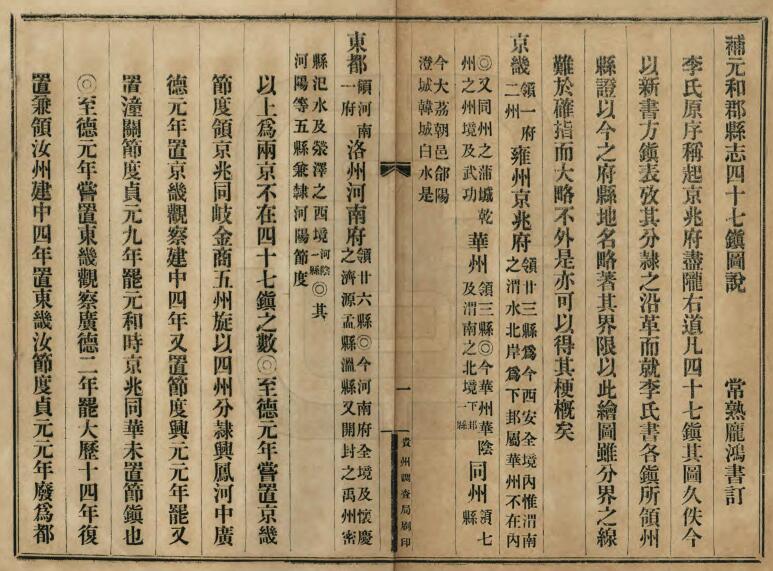 補元和郡縣志四十七鎭圖說 常熟龐鴻書訂
李氏原序稱起京兆府盡隴右道凡四十七鎭其圖久佚今
以新書方鎭表攷其分隸之沿革而就李氏書各鎭所領州
縣證以今之府縣地名略著其界限以此繪圖雖分界之線
難於確指而大略不外是亦可以得其梗槪矣
京畿領一府二州 雍州京兆府領廿三縣爲今西安全境內惟渭南之渭水北岸爲下邽屬華州不在內
◎又同州之蒲城乾州之州境及武功 華州領三縣◎今華州華陰及渭南之北境下邽一縣 同州領七縣
今大荔朝邑郃陽澄城韓城白水是
東都領河南一府 洛州河南府領廿六縣◎今河南府全境及懷慶之濟源孟縣溫縣又開封之禹州密
縣汜水及滎澤之西境河陰一縣◎其河陽等五縣兼隸河陽節度
以上爲兩京不在四十七鎭之數◎至德元年嘗置京畿
節度領京兆同岐金商五州旋以四州分隸興鳳河中廣
德元年置京畿觀察建中四年又置節度興元元年罷又
置潼關節度貞元九年罷元和時京兆同華未置節鎭也
◎至德元年嘗置東畿觀察廣德二年罷大歷十四年復
置兼領汝州建中四年置東畿汝節度貞元元年廢爲都
一
貴州調查局刷印